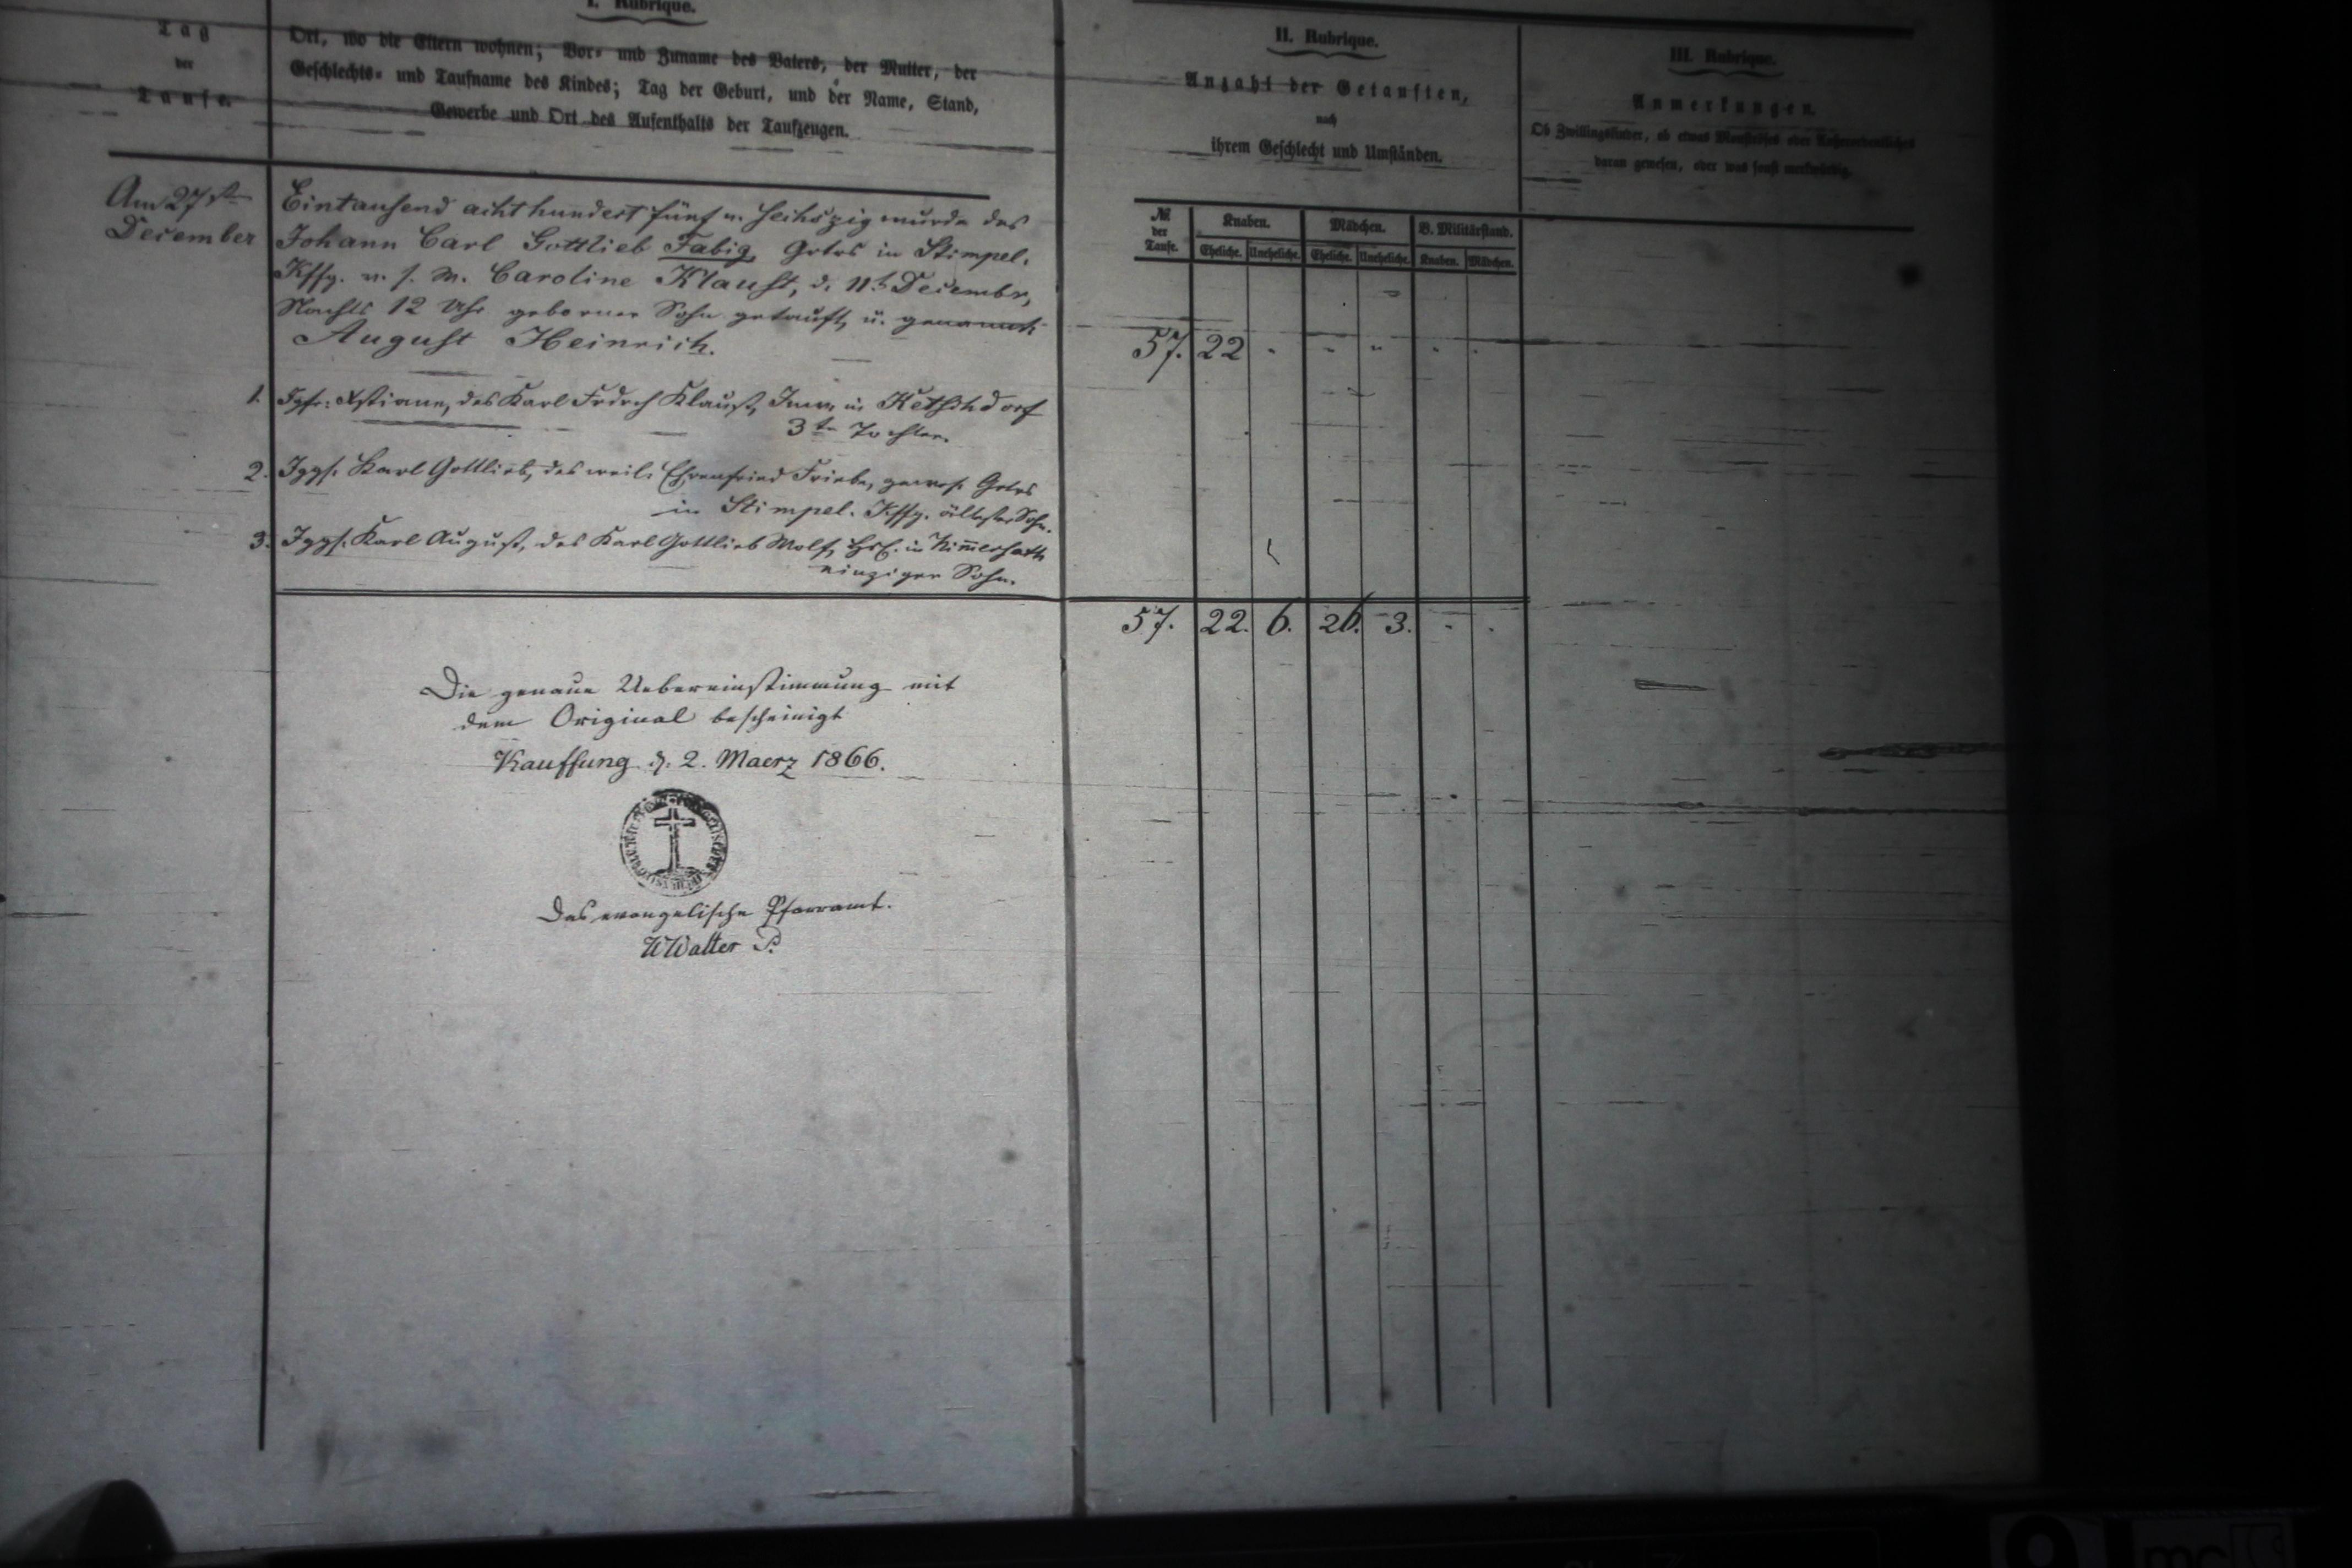 I. Rubrique.
Tag
der
Taufe.
Ort, wo die Eltern wohnen; Vor= und Zuname des Vaters, der Mutter, der
Geschlechts= und Taufname des Kindes; Tag der Geburt, und der Name, Stand,
Gewerbe und Ort des Aufenthalts der Taufzeugen.
Am 27ste
December
Eintausend achthundert fünf u. sechszig wurde des
Johann Carl Gottlieb Fabig, Grtrs in Stimpel.
Kffg. u. s. W. Caroline Klaust, d. 11t December,
Nachts 12 Uhr geborner Sohn getauft, u. genannt:
August Heinrich.
1. Igfr: Xstiane, des Karl Frdrch Klaust, Inw. in Ketschdorf
3te Tochter.
2. Iggs. Karl Gottlieb, des weil. Ehrenfried Friebe, gewes. Grtrs
in Stimpel. Kffg. ältester Sohn.
3. Iggs. Karl August, des Karl Gottlieb Wolf, in
einziger Sohn.
Die genaue Uebereinstimmung mit
dem Original bescheinigt
Kauffung d. 2. Maerz 1866.
Das evangelische Pfarramt.
Walter P.
II. Rubrique.
Anzahl der Getauften,
nach
ihrem Geschlecht und Umständen.
№ der Taufe. Knaben. Mädchen. B. Militärstand.
Eheliche. Uneheliche. Eheliche. Uneheliche. Knaben. Mädchen.
57. 22 - - - - -
57. 22. 6. 26. 3. - -
III. Rubrique.
Anmerkungen.
Ob Zwillingskinder, ob etwas Monströses oder Außerordentliches
daran gewesen, oder was sonst merkwürdig.